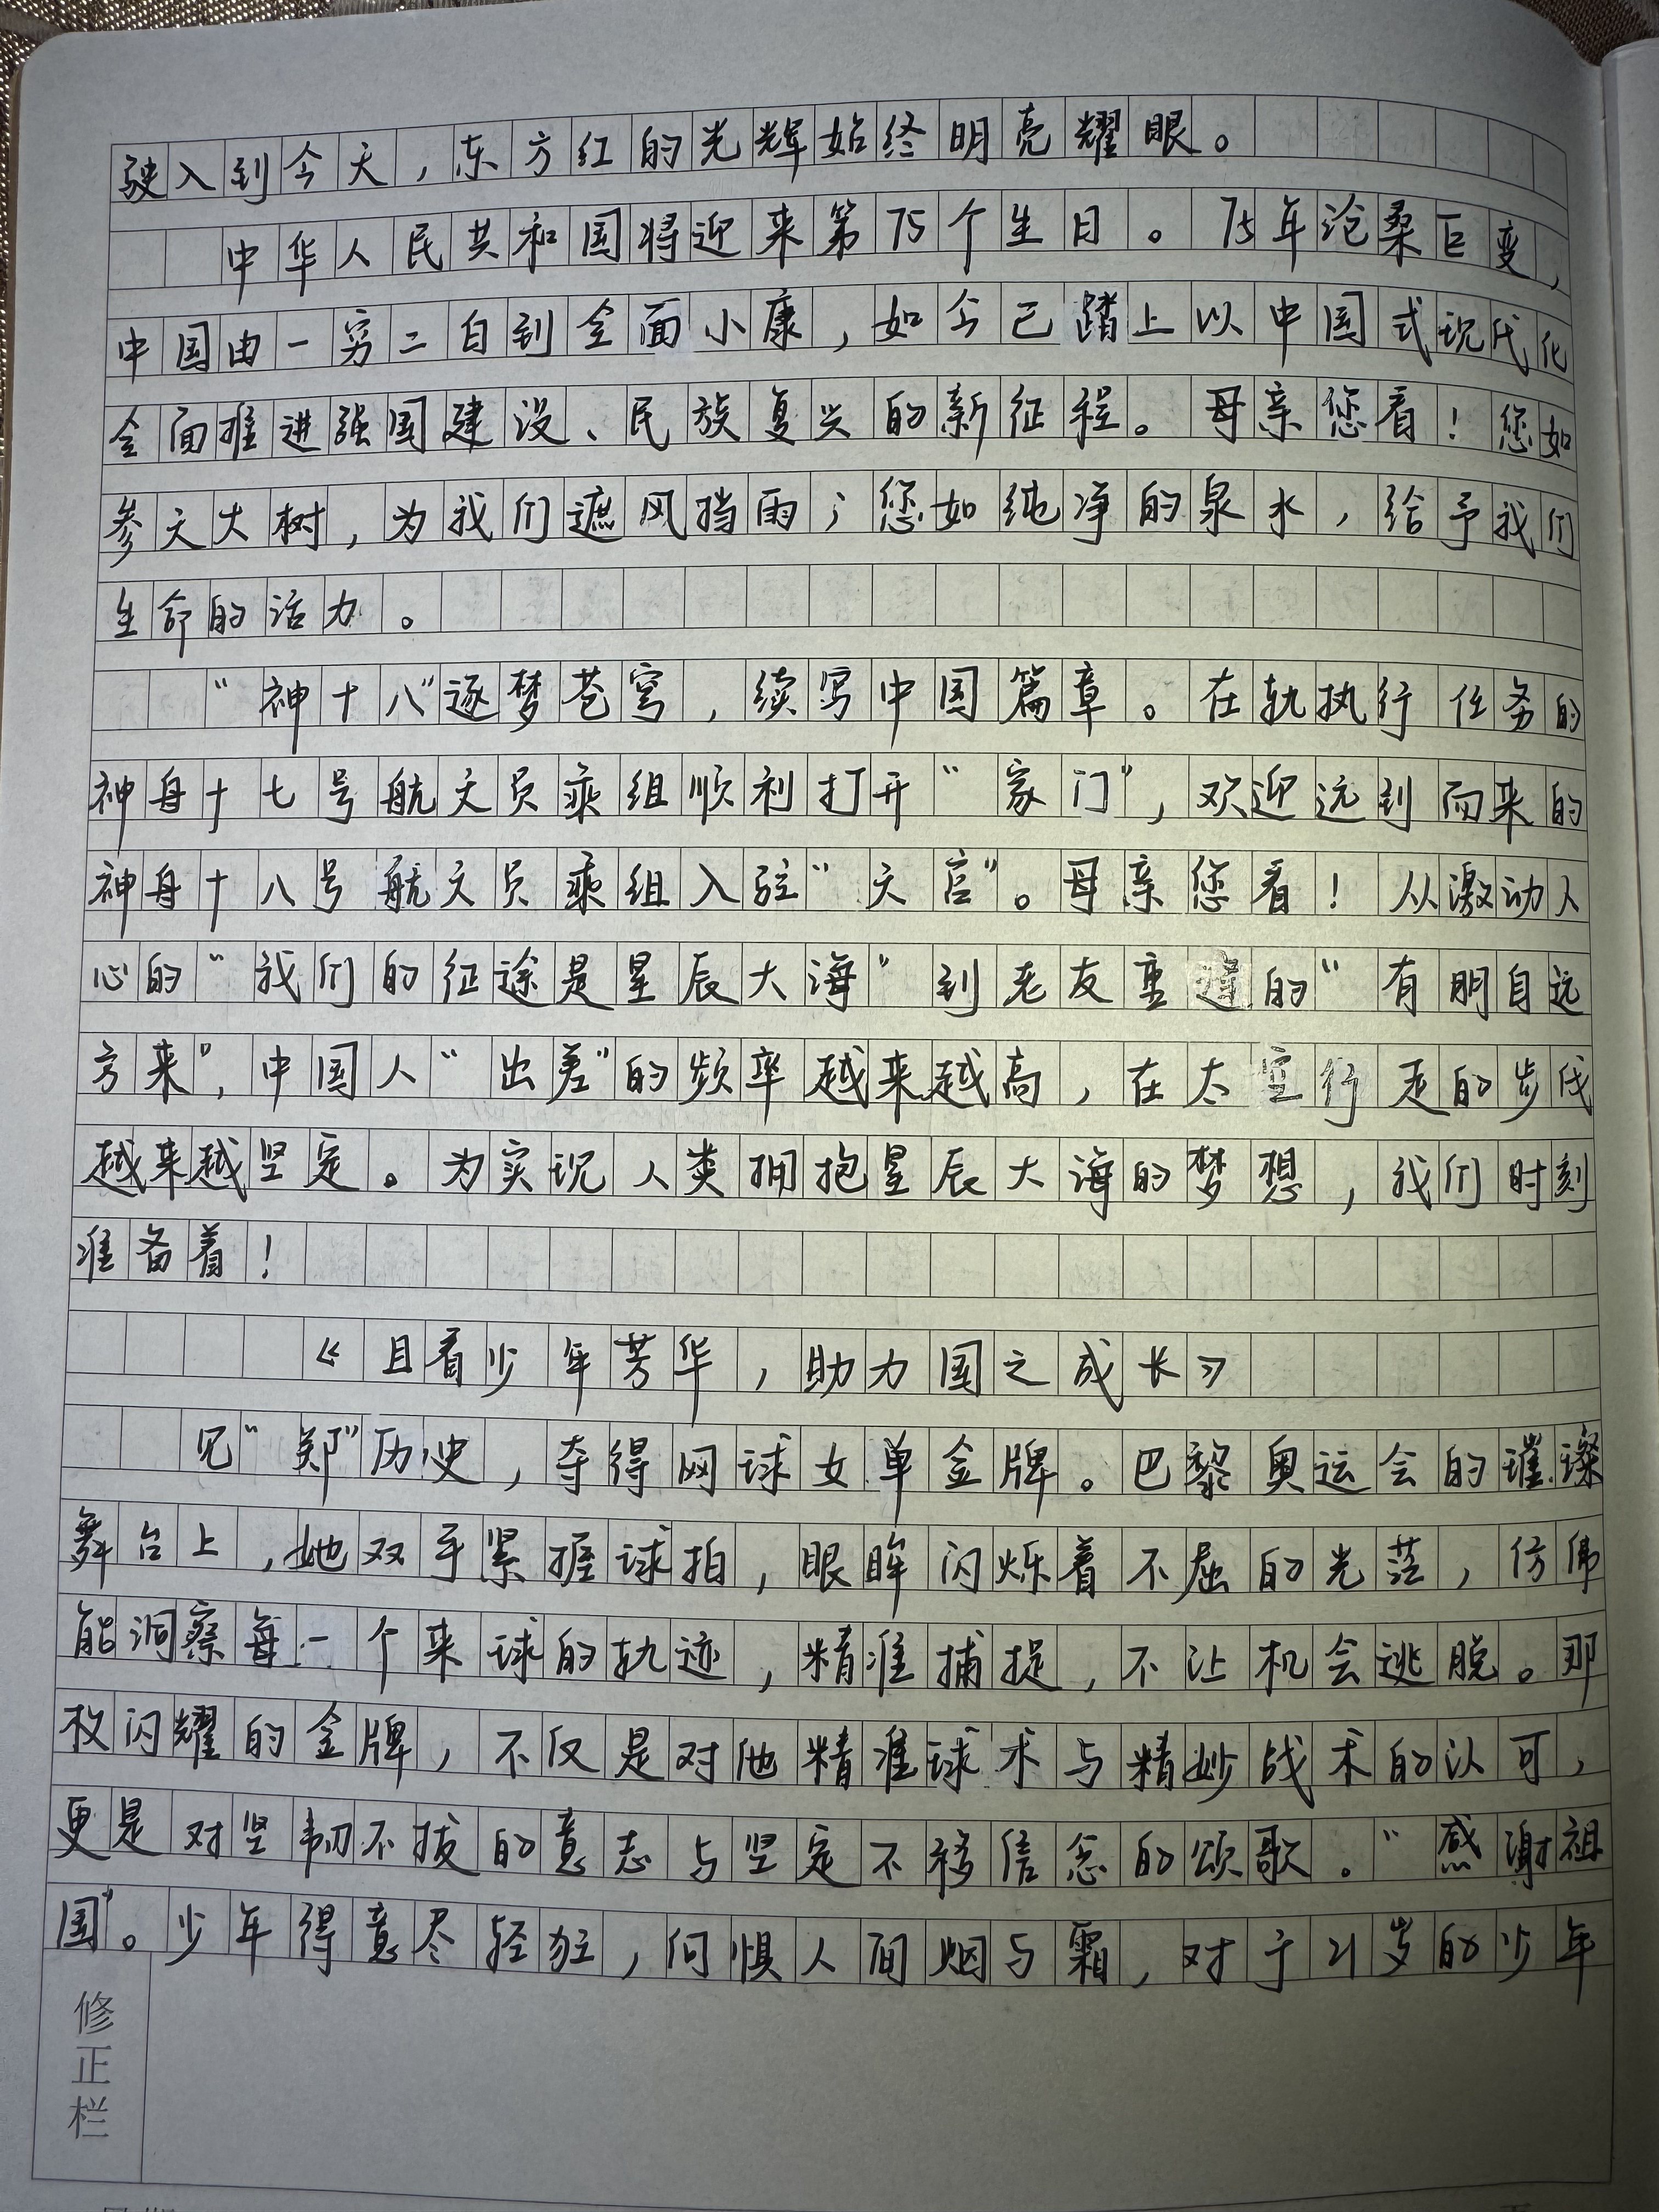 驶入到今天，东方红的光辉始终明亮耀眼。
中华人民共和国将迎来第75个生日。75年沧桑巨变，
中国由一穷二白到全面小康，如今已踏上以中国式现代化
全面推进强国建设、民族复兴的新征程。母亲您看！您如
参天大树，为我们遮风挡雨；您如纯净的泉水，给予我们
生命的活力。
“神十八”逐梦苍穹，续写中国篇章。在轨执行任务的
神舟十七号航天员乘组顺利打开“家门”，欢迎远到而来的
神舟十八号航天员乘组入驻“天宫”。母亲您看！从激动人
心的“我们的征途是星辰大海”到老友重逢的“有朋自远
方来”，中国人“出差”的频率越来越高，在太空行走的步伐
越来越坚定。为实现人类拥抱星辰大海的梦想，我们时刻
准备着！
《且看少年芳华，助力国之成长》
见“郑”历史，夺得网球女单金牌。巴黎奥运会的璀璨
舞台上，她双手紧握球拍，眼眸闪烁着不屈的光茫，仿佛
能洞察每一个来球的轨迹，精准捕捉，不让机会逃脱。那
枚闪耀的金牌，不仅是对他精准球术与精妙战术的认可，
更是对坚韧不拔的意志与坚定不移信念的颂歌。“感谢祖
国”。少年得意尽轻狂，何惧人间烟与霜，对于21岁的少年
修正栏